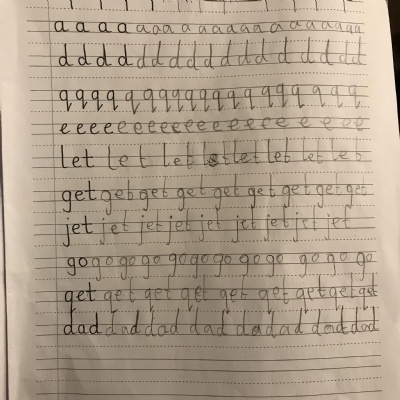 a a a a a a a a a a a a a a a a a a a
d d d d d d d d d d d d d d d d d d
q q q q q q q q q q q q q q q q q q
e e e e e e e e e e e e e e e e e e e
let let let let let let let let
get get get get get get get get get
jet jet jet jet jet jet jet jet jet
go go go go go go go go go go go go
get get get get get get get get get
dad dad dad dad dad dad dad dad